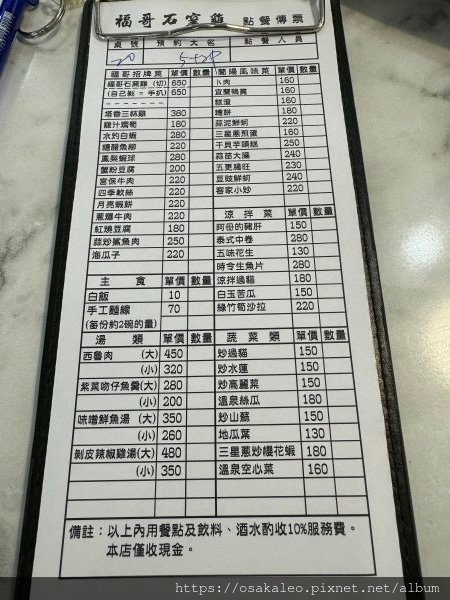 福哥石窯雞 點餐傳票
桌號 預約大名 點餐人員
20
福哥招牌菜 單價 數量 蘭陽風味菜 單價 數量
福哥石窯雞 (切) 650 卜肉 160
(自己剝=手扒) 650 宜蘭鴨賞 160
糕渣 160
塔香三杯雞 380 嘟餅 180
雞汁燜筍 180 蒜泥鮮蚵 220
水灼白蝦 280 三星蔥煎蛋 160
糖醋魚柳 220 干貝芋頭糕 250
鳳梨蝦球 280 蒜苗大腸 240
蟹粉豆腐 200 五更腸旺 230
宮保牛肉 220 豆豉鮮蚵 240
四季軟絲 220 客家小炒 220
月亮蝦餅 220
蔥爆牛肉 220 涼拌菜 單價 數量
紅燒豆腐 180 阿母的豬肝 150
蒜炒鯊魚肉 250 泰式中卷 280
海瓜子 220 五味花生 130
時令生魚片 280
主食 單價 數量 涼拌過貓 180
白飯 10 白玉苦瓜 150
手工麵線 70 綠竹筍沙拉 220
(每份約2碗的量)
湯類 單價 數量 蔬菜類 單價 數量
西魯肉 (大) 450 炒過貓 150
(小) 320 炒水蓮 150
紫菜吻仔魚羹(大) 280 炒高麗菜 150
(小) 200 溫泉絲瓜 180
味噌鮮魚湯 (大) 350 炒山蘇 150
(小) 260 地瓜葉 130
剝皮辣椒雞湯(大) 480 三星蔥炒櫻花蝦 180
(小) 350 溫泉空心菜 160
備註：以上內用餐點及飲料、酒水酌收10%服務費。
本店僅收現金。
https://osakaleo.pixnet.net/album